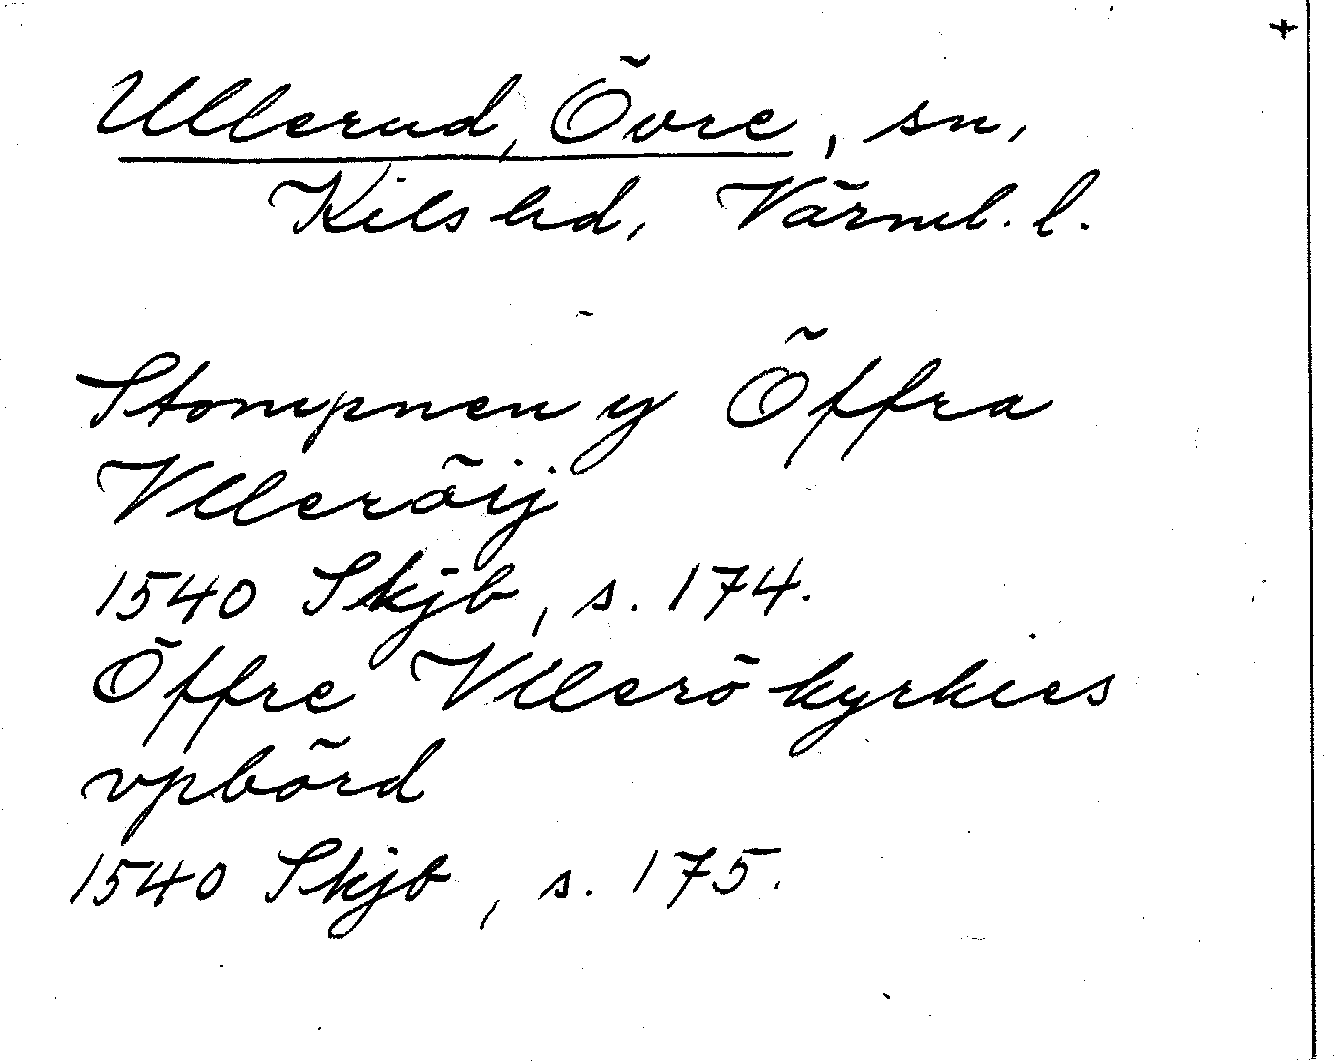 Ullerud, Övre, sn,
Kils hd, Värml. l.
Stompnen y Öffra
Vlleröij
1540 Skjb, s. 174.
Öffre Vllerö kyrkies
vpbörd
1540 Skjb, s. 175.